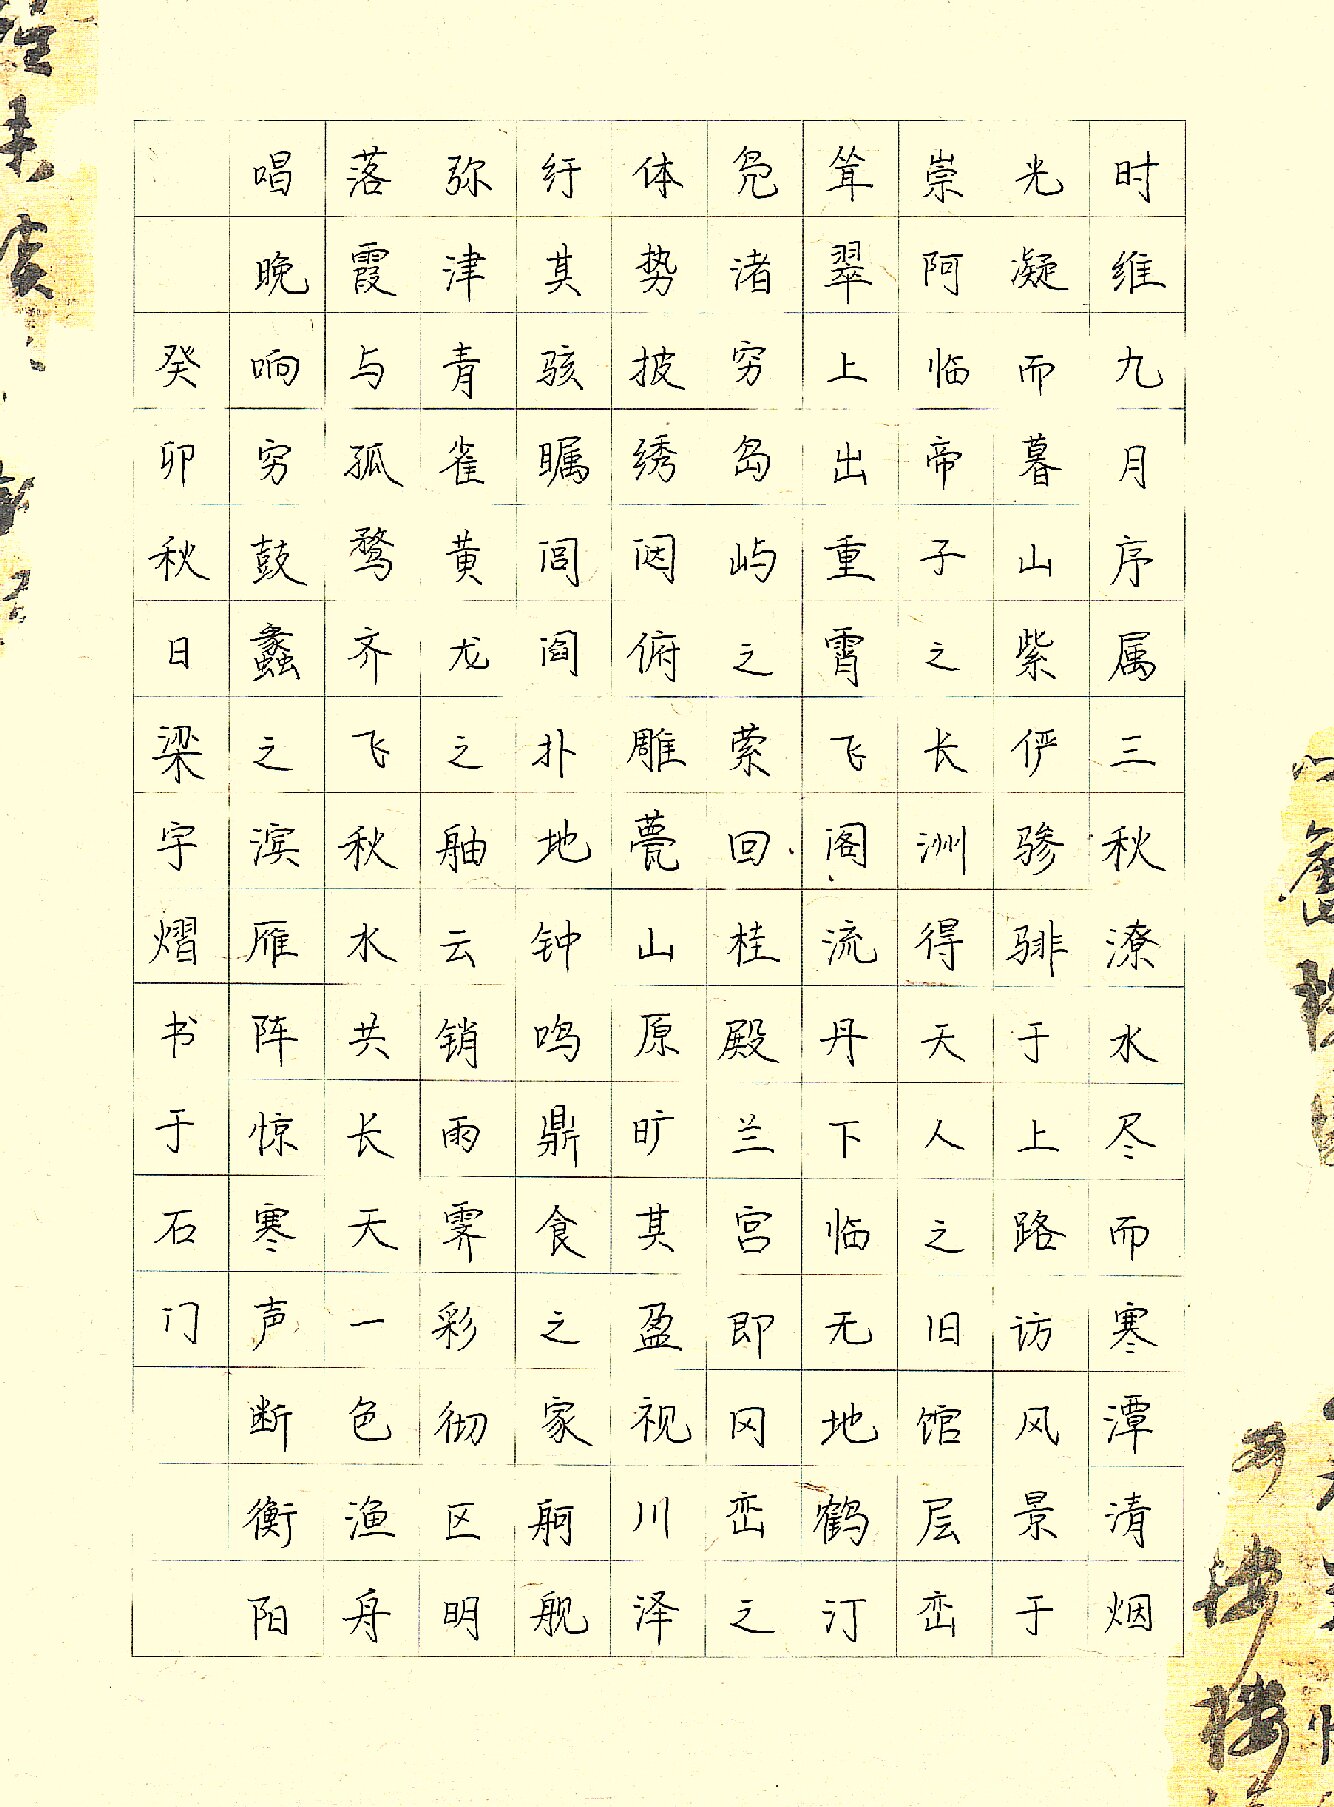 时维九月序属三秋潦水尽而寒潭清烟
光凝而暮山紫俨骖𬴂于上路访风景于
崇阿临帝子之长洲得天人之旧馆层峦
耸翠上出重霄飞阁流丹下临无地鹤汀
凫渚穷岛屿之萦回桂殿兰宫即冈峦之
体势披绣闼俯雕甍山原旷其盈视川泽
纡其骇瞩闾阎扑地钟鸣鼎食之家舸舰
弥津青雀黄龙之舳云销雨霁彩彻区明
落霞与孤鹜齐飞秋水共长天一色渔舟
唱晚响穷鼓蠡之滨雁阵惊寒声断衡阳
癸卯秋日梁宇熠书于石门